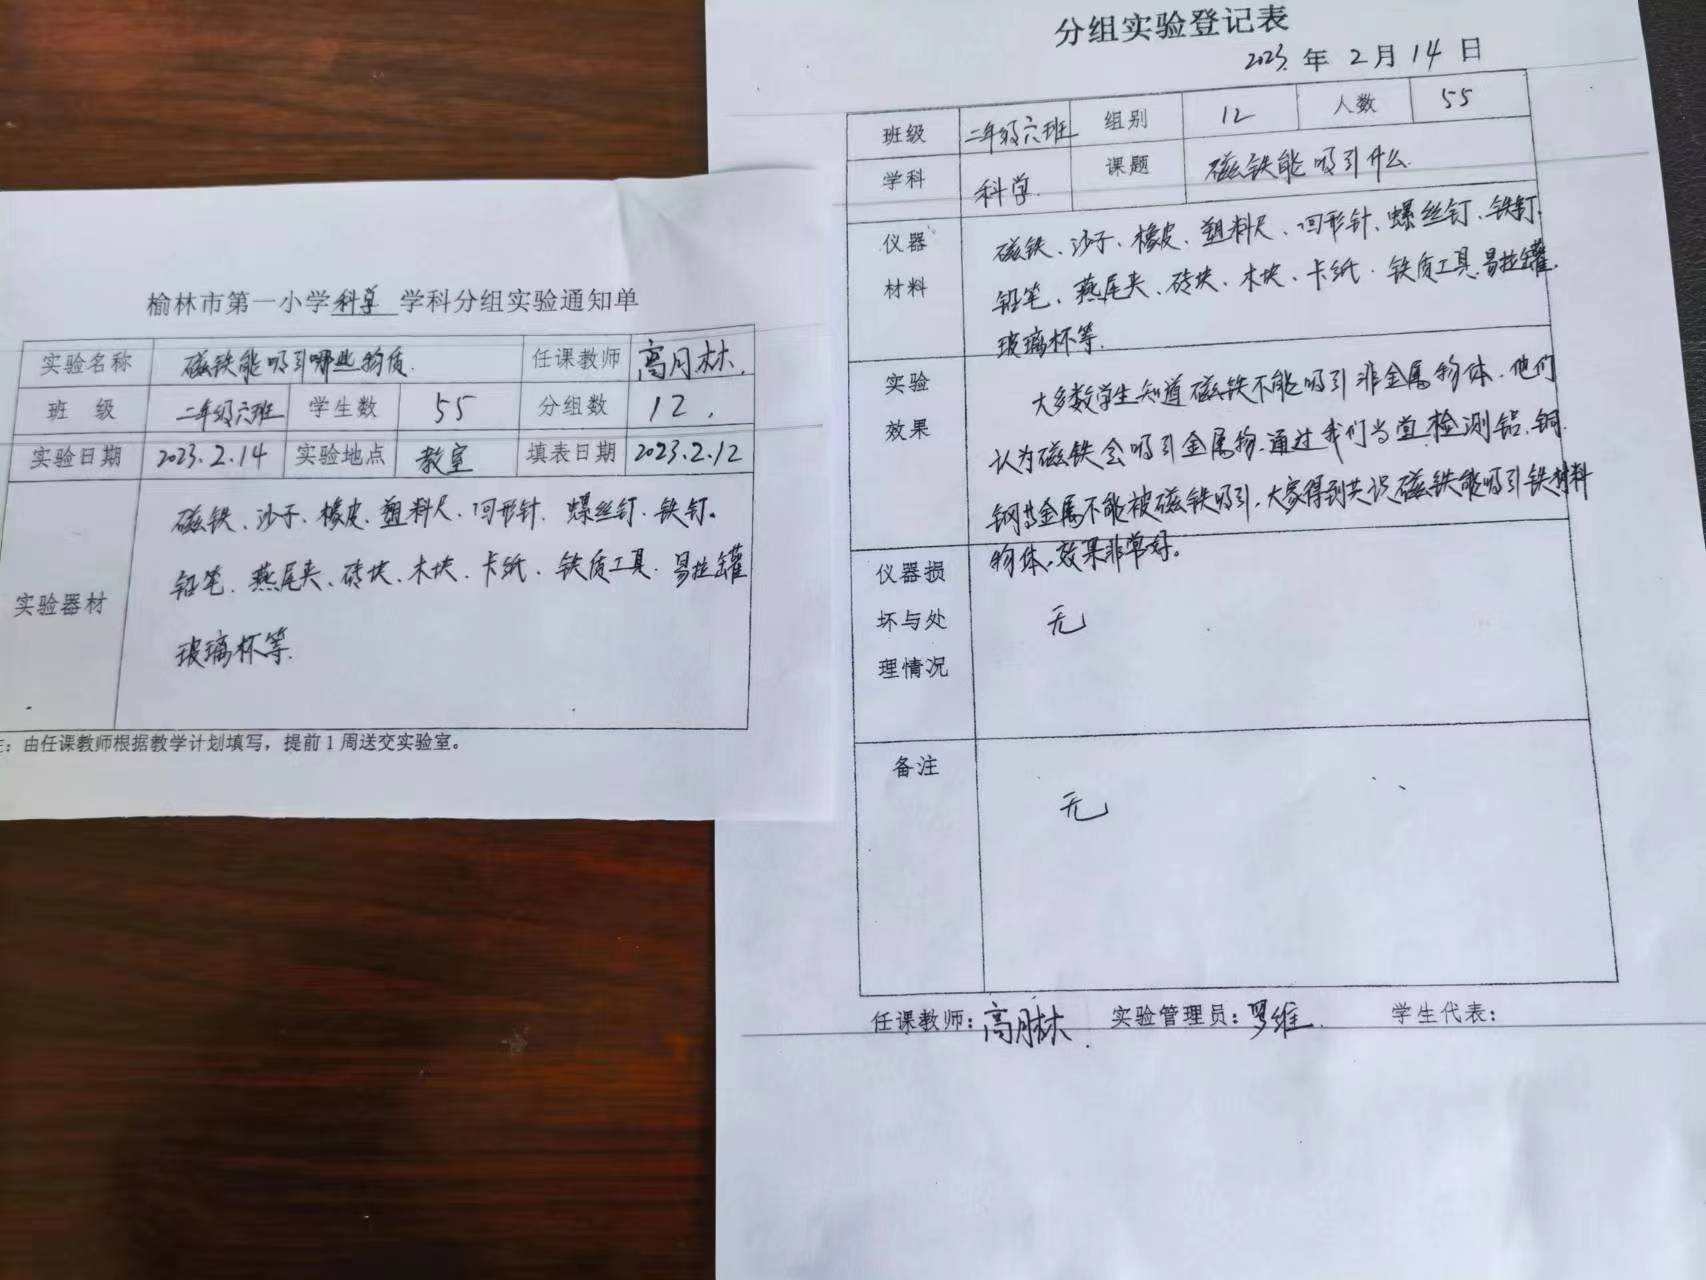 榆林市第一小学科学 学科分组实验通知单
实验名称 磁铁能吸引哪些物质. 任课教师 高月林.
班 级 二年级六班 学生数 55 分组数 12.
实验日期 2023.2.14 实验地点 教室 填表日期 2023.2.12
实验器材
磁铁、沙子、橡皮、塑料尺、回形针、螺丝钉、铁钉。
铅笔、燕尾夹、砖块、木块、卡纸、铁质工具、易拉罐
玻璃杯等.
：由任课教师根据教学计划填写，提前1周送交实验室。
分组实验登记表
2023.年 2月 14日
班级 二年级六班 组别 12 人数 55
学科 科学. 课题 磁铁能吸引什么.
仪器
材料
磁铁、沙子、橡皮、塑料尺、回形针、螺丝钉、铁钉.
铅笔、燕尾夹、砖块、木块、卡纸.铁质工具.易拉罐.
玻璃杯等.
实验
效果
大多数学生知道磁铁不能吸引非金属物体.他们
认为磁铁会吸引金属物.通过我们当堂检测铝.铜.
钢等金属不能被磁铁吸引.大家得到共识磁铁能吸引铁材料
物体.效果非常好。
仪器损
坏与处
理情况
无
备注
无
任课教师：高月林. 实验管理员：罗维. 学生代表：